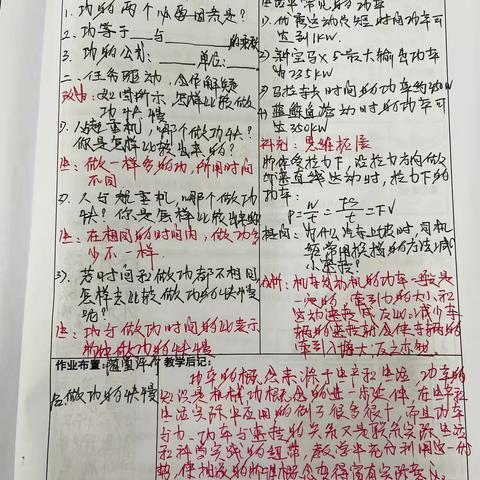 1. 功的两个必要因素是?
2. 功等于___与___的乘积
3. 功的公式:___单位:___
二、任务驱动,合作解疑
如图所示,怎样比较做功快慢
1) 人与起重机,哪个做功快?
你是怎样比较出来的?
生:做一样多的功,所用时间
不同.
2) 人与起重机,哪个做功
快?你是怎样比较出来的
生:在相同的时间内,做功多
少不一样.
3) 若时间和做功都不相同
怎样去比较做功的快慢
呢?
生:功与做功时间的比表示
物体做功的快慢
作业布置:
生活中常见的功率
1) 优秀运动员短时间功率可
达到1kW.
2) 新宝马X5最大输出功率
为235kW
3) 马拉车长时间的功率约450W
4) 蓝鲸自游动时的功率可
达350kW
补充:思维拓展
物体受拉力F,沿拉力方向做
匀速直线运动时,拉力F的
功率:
P=W/t=FS/t=FV
提问:为什么汽车上坡时,司机
经常用换挡的方法减
小速度?
分析:机车发动机的功率一般是
一定的,牵引力的大小和
运动速度成反比,减小车
辆的速度就会使车辆的
牵引力增大,反之亦然.
教学后记:
功率的概念来源于生产和生活,功率的
知识是机械功概念的进一步延伸,在生产和
生活实际中应用的例子很多很广,而且功率
与力、功率与速度的关系又是联系实际生活
和科学实践的纽带,教学中充分利用这一优
势,使相应的物理概念变得富有实际意义.